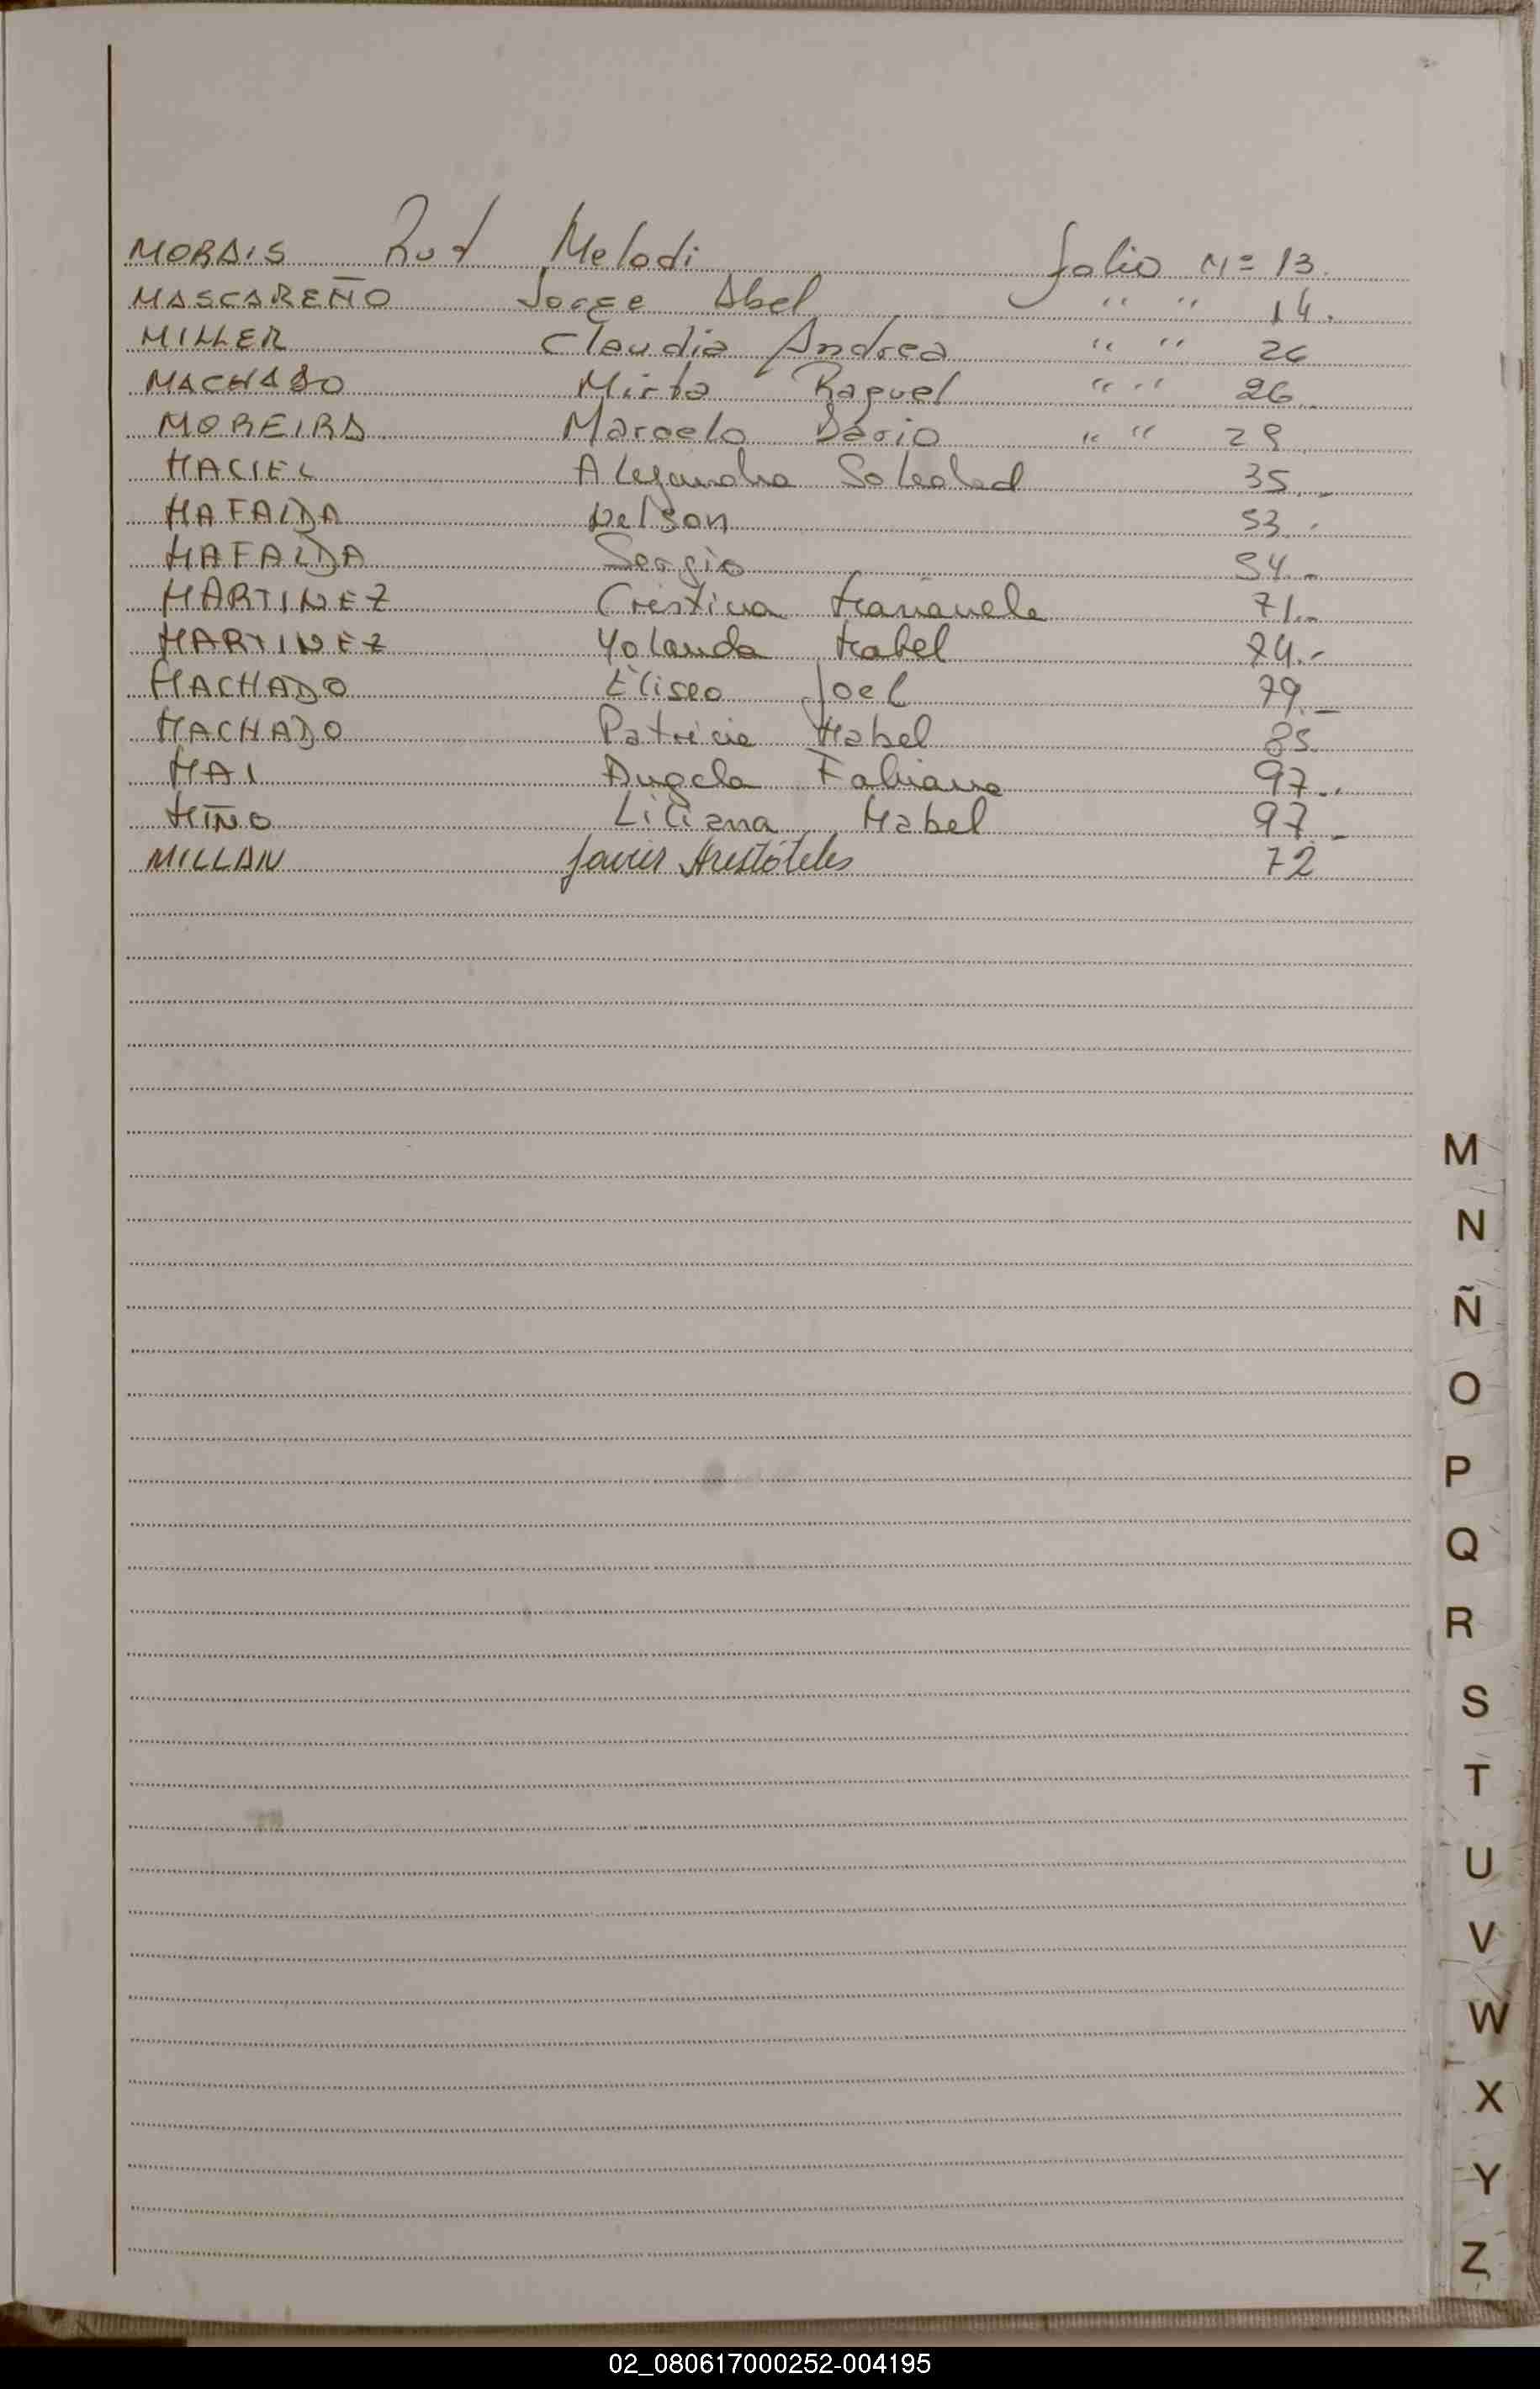 MORAIS Rut Melodi folio Nº 13.
MASCAREÑO Jorge Abel " " 14.
MILLER Claudia Andrea " " 26
MACHADO Mirta Raquel " " 26.
MOREIRA Marcelo Dario " " 29
MACIEL Alejandra Soledad 35.-
MAFALDA Nelson 53.-
MAFALDA Sergio 54.-
MARTINEZ Cristina Manuela 71.-
MARTINEZ Yolanda Mabel 74.-
MACHADO Eliseo Joel 79.-
MACHADO Patricia Mabel 85.
MAI Angela Fabiana 97.-
MIÑO Liliana Mabel 97.-
MILLAN Javier Aristóteles 72
M
N
Ñ
O
P
Q
R
S
T
U
V
W
X
Y
Z
02_080617000252-004195